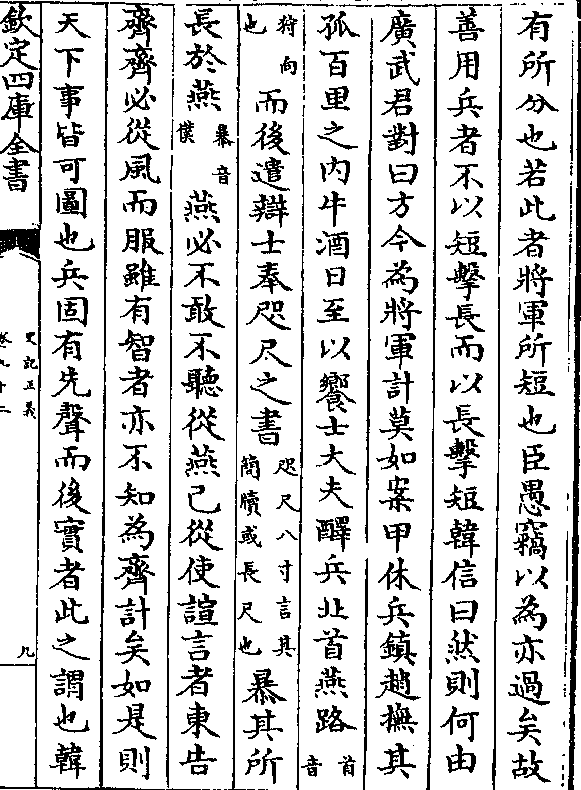 有所分也若此者將軍所短也臣愚竊以為亦過矣故
善用兵者不以短擊長而以長擊短韓信曰然則何由
廣武君對曰方今為將軍計莫如案甲休兵鎮趙撫其
孤百里之內牛酒日至以饗士大夫醳兵北首燕路首音
狩向也而後遣辯士奉咫尺之書咫尺八寸言其簡牘或長尺也暴其所
長於燕暴音僕燕必不敢不聽從燕已從使諠言者東告
齊齊必從風而服雖有智者亦不知為齊計矣如是則
天下事皆可圖也兵固有先聲而後實者此之謂也韓
欽定四庫全書
史記正義
卷九十二
九